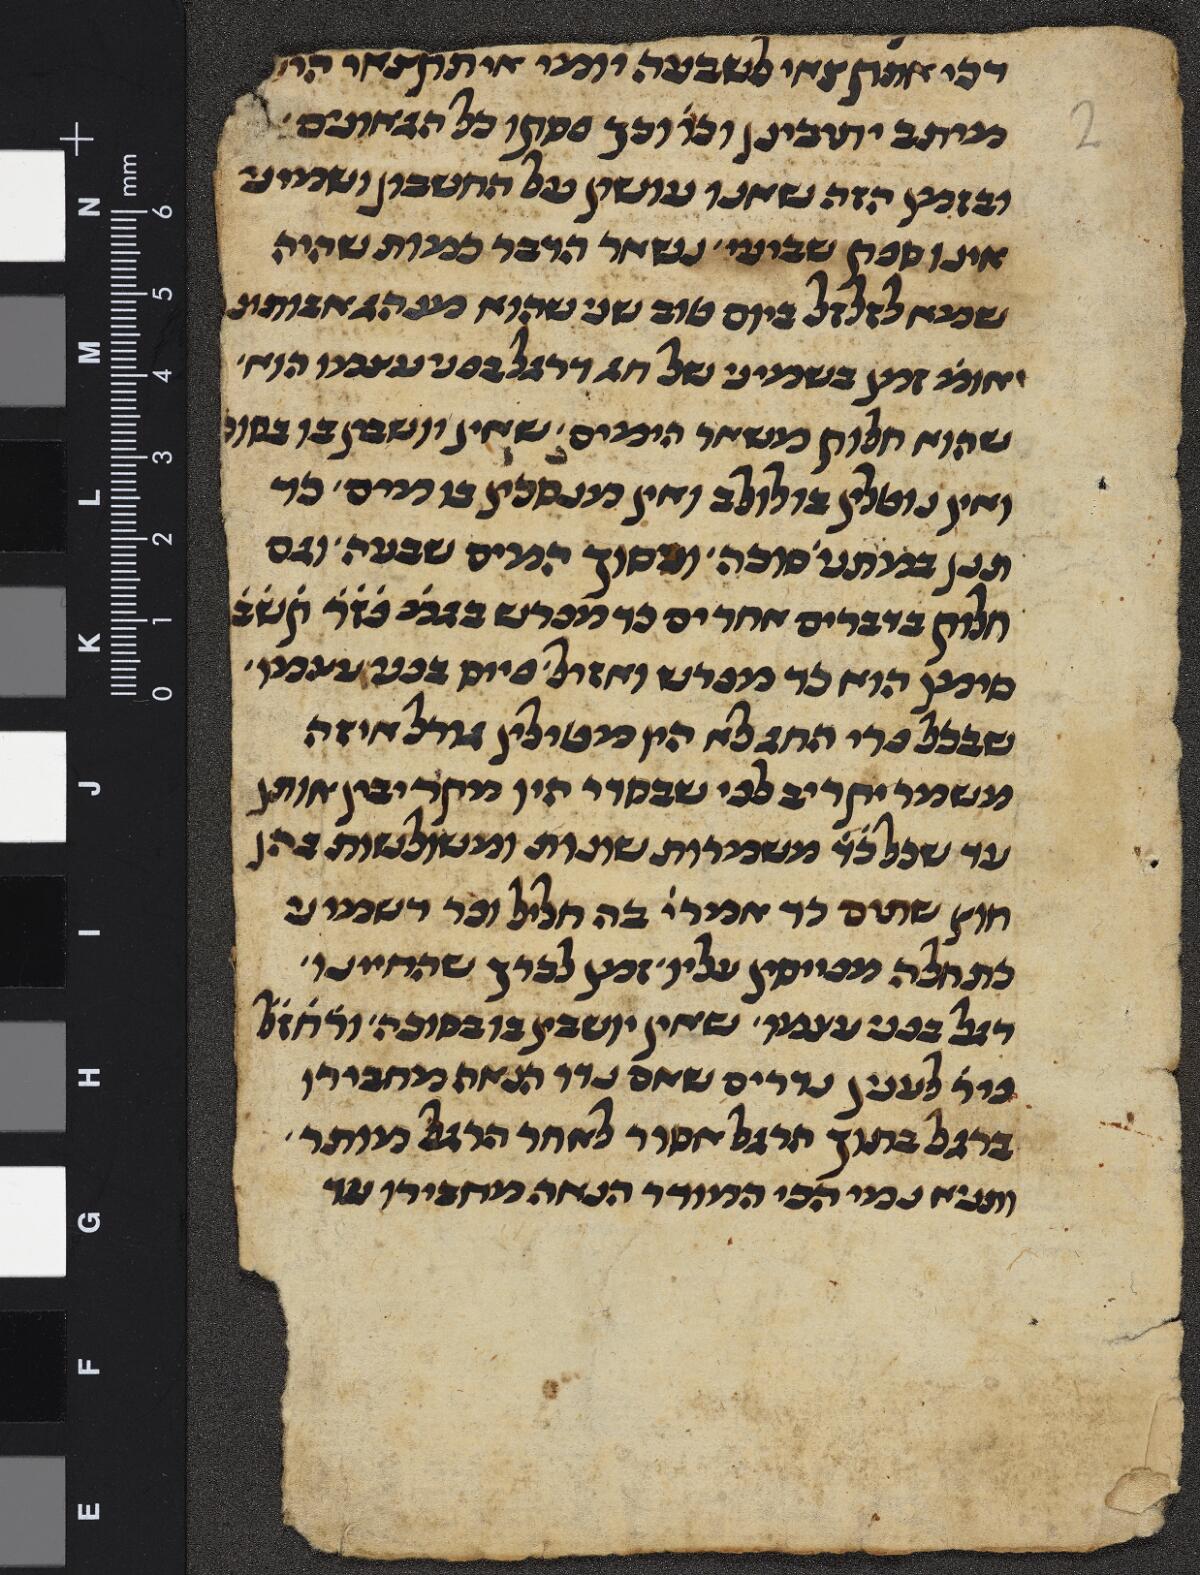 דכי איתקצאי לשבעה יומי איתקצאי הוי
מיתב יתבינן וכו' וכך פסקו כל הגאונים
ובזמן הזה שאנו עושין על החשבון ושמיני
אינו ספק שביעי נשאר הדבר כמות שהיה
שמא לזלזל ביום טוב שני שהוא מנהג אבותינו
אומ' זמן בשמיני של חג דרגל בפני עצמו הוא
שהוא חלוק משאר הימים שאין יושבין בו בסוכה
ואין נוטלין בו לולב ואין מנסכין בו מים כד
תנן במתני' סוכה וניסוך המים שבעה וגם
חלוק בדברים אחרים כד מפרש בגמ' פזר קשב
סימן הוא כד מפרש ואזיל פייס בפני עצמו
שבכל פרי החג לא היו מטילין גורל איזה
משמר יקריב לפי שבסדר היו מקריבין אותן
עד שכל כד משמרות שונות ומשולשות בהן
חוץ משתים כד אמרי' בה חליל וכו' דשמיני
כתחלה מפייסין עליו זמן לברך שהחיינו
רגל בפני עצמו שאין יושבין בו בסוכה ורחזל
פיר' לענין נדרים שאם נדר הנאת מחבירו
ברגל בתוך הרגל אסור לאחר הרגל מותר
ותניא נמי הכי המודר הנאה מחבירו עד